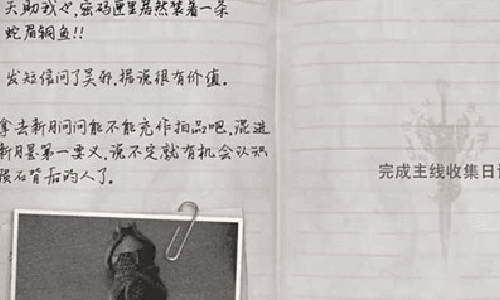 天助我也,密码匣里居然装着一条
蛇眉铜鱼!!
发短信问了吴邪,据说很有价值。
拿去新月问问能不能充作拍品吧,混进
新月是第一要义,说不定就有机会认识
陨石背后的人了。
完成主线收集日